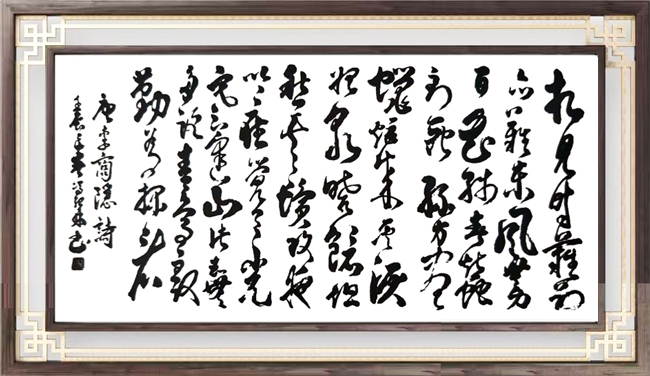 相見時難別
亦難東風無力
百花殘春蠶
到死絲方盡
蠟炬成灰淚
始乾曉鏡但
愁雲鬢改夜
吟應覺月光
寒蓬山此去無
多路青鳥殷
勤為探看
唐李商隱詩